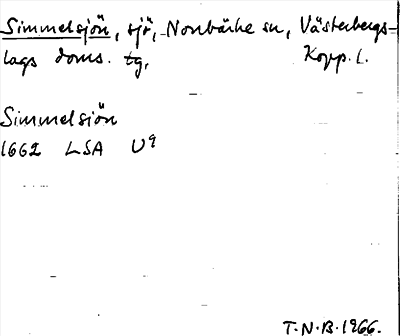 Simmelsjön, sjö, Norrbärke sn, Västerbergs-
lags doms. tg, Kopp. l.
Simmelsjön
1662 LSA U9
T.N.B. 1966.